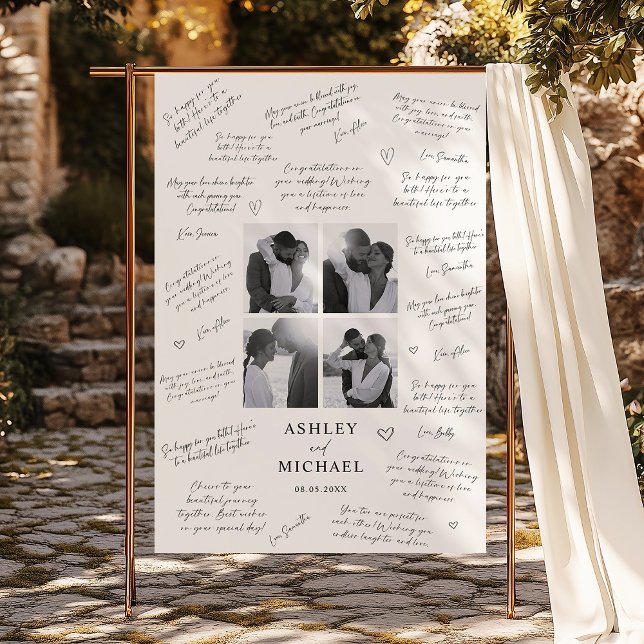 So happy for you
both! Here's to a
beautiful life together
So happy for you
both! Here's to a
beautiful life together
May your union be blessed with joy,
love, and faith. Congratulations on
your marriage!
Xoxo, Alice
May your union be blessed
with joy, love, and faith.
Congratulations on your
marriage!
Love, Samantha
May your love shine brighter
with each passing year.
Congratulations!
Xoxo, Jessica
Congratulations on
your wedding! Wishing
you a lifetime of love
and happiness.
So happy for you
both! Here's to a
beautiful life together
So happy for you both! Here's
to a beautiful life together
Love, Samantha
Congratulations on
your wedding! Wishing
you a lifetime of love
and happiness.
Xoxo, Alice
May your love shine brighter
with each passing year.
Congratulations!
Xoxo, Alice
May your union be blessed
with joy, love, and faith.
Congratulations on your
marriage!
So happy for you
both! Here's to a
beautiful life together
Love, Bobby
So happy for you both! Here's
to a beautiful life together
ASHLEY
and
MICHAEL
08.05.20XX
Congratulations on
your wedding! Wishing
you a lifetime of love
and happiness.
Cheers to your
beautiful journey
together. Best wishes
on your special day!
Love, Samantha
You two are perfect for
each other! Wishing you
endless laughter and love.